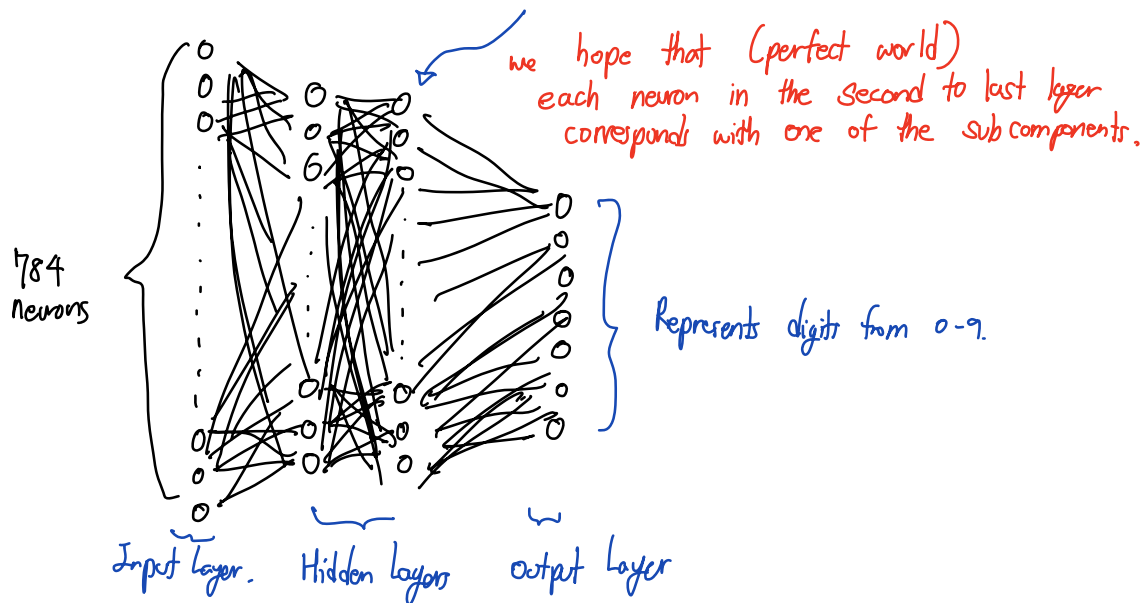 we hope that (perfect world)
each neuron in the second to last layer
corresponds with one of the subcomponents.
784
neurons
Represents digits from 0-9.
Input Layer.
Hidden Layers
output Layer